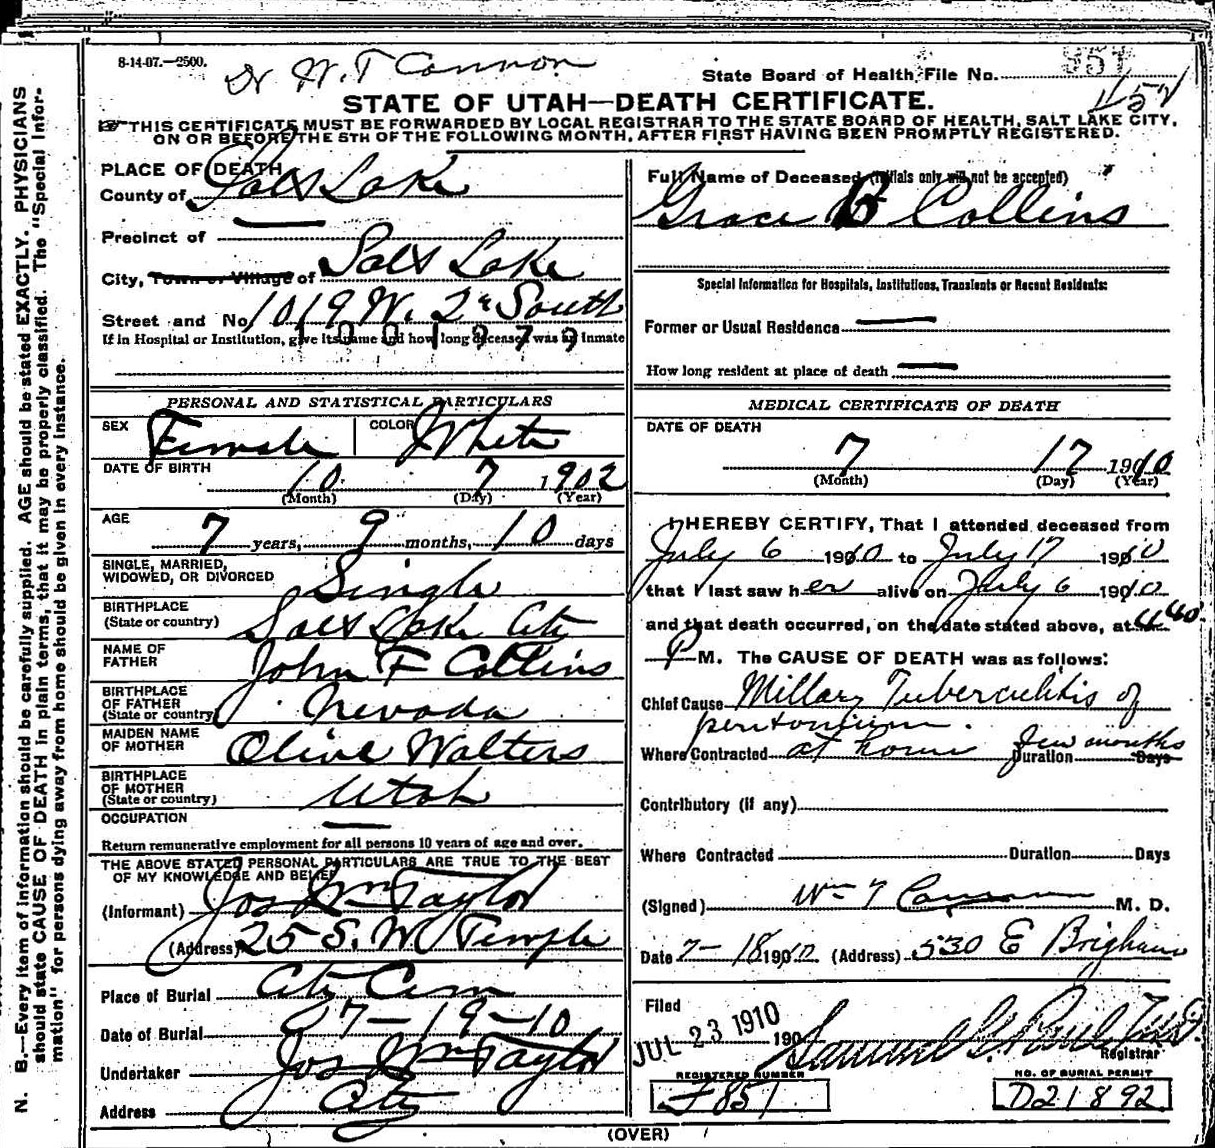 8-14-07.—2500.
Dr W. T Cannon
State Board of Health File No. 851
STATE OF UTAH—DEATH CERTIFICATE.
☞ THIS CERTIFICATE MUST BE FORWARDED BY LOCAL REGISTRAR TO THE STATE BOARD OF HEALTH, SALT LAKE CITY,
ON OR BEFORE THE 5TH OF THE FOLLOWING MONTH, AFTER FIRST HAVING BEEN PROMPTLY REGISTERED.
PLACE OF DEATH
County of Salt Lake
Precinct of —
City, Town or Village of Salt Lake
Street and No. 1019 W. 2d South
If in Hospital or Institution, give its name and how long deceased was an inmate
1001979
PERSONAL AND STATISTICAL PARTICULARS
SEX Female COLOR White
DATE OF BIRTH
10 7 1902
(Month) (Day) (Year)
AGE
7 years, 9 months, 10 days
SINGLE, MARRIED,
WIDOWED, OR DIVORCED Single
BIRTHPLACE
(State or country) Salt Lake City
NAME OF
FATHER John F Collins
BIRTHPLACE
OF FATHER
(State or country) Nevada
MAIDEN NAME
OF MOTHER Olive Walters
BIRTHPLACE
OF MOTHER
(State or country) Utah
OCCUPATION —
Return remunerative employment for all persons 10 years of age and over.
THE ABOVE STATED PERSONAL PARTICULARS ARE TRUE TO THE BEST
OF MY KNOWLEDGE AND BELIEF
(Informant) Jos Wm Taylor
(Address) 25 S. W Temple
Place of Burial City Cem
Date of Burial 7-19-10
Undertaker Jos Wm Taylor
Address City
Full Name of Deceased (initials only will not be accepted)
Grace B Collins
Special Information for Hospitals, Institutions, Transients or Recent Residents:
Former or Usual Residence —
How long resident at place of death —
MEDICAL CERTIFICATE OF DEATH
DATE OF DEATH
7 17 1910
(Month) (Day) (Year)
I HEREBY CERTIFY, That I attended deceased from
July 6 1910 to July 17 1910
that I last saw her alive on July 6 1910
and that death occurred, on the date stated above, at 4:40
P M. The CAUSE OF DEATH was as follows:
Chief Cause Millary Tuberculitis of
peritonium.
Where Contracted at home Duration few months Days
Contributory (if any)
Where Contracted Duration Days
(Signed) Wm T Cannon M. D.
Date 7-18 1910 (Address) 530 E Brigham
Filed
JUL 23 1910 190
Samuel G. Paul
Registrar
REGISTERED NUMBER
F851
NO. OF BURIAL PERMIT
D21892
(OVER)
N. B.—Every item of information should be carefully supplied. AGE should be stated EXACTLY. PHYSICIANS
should state CAUSE OF DEATH in plain terms, that it may be properly classified. The "Special Infor-
mation" for persons dying away from home should be given in every instance.